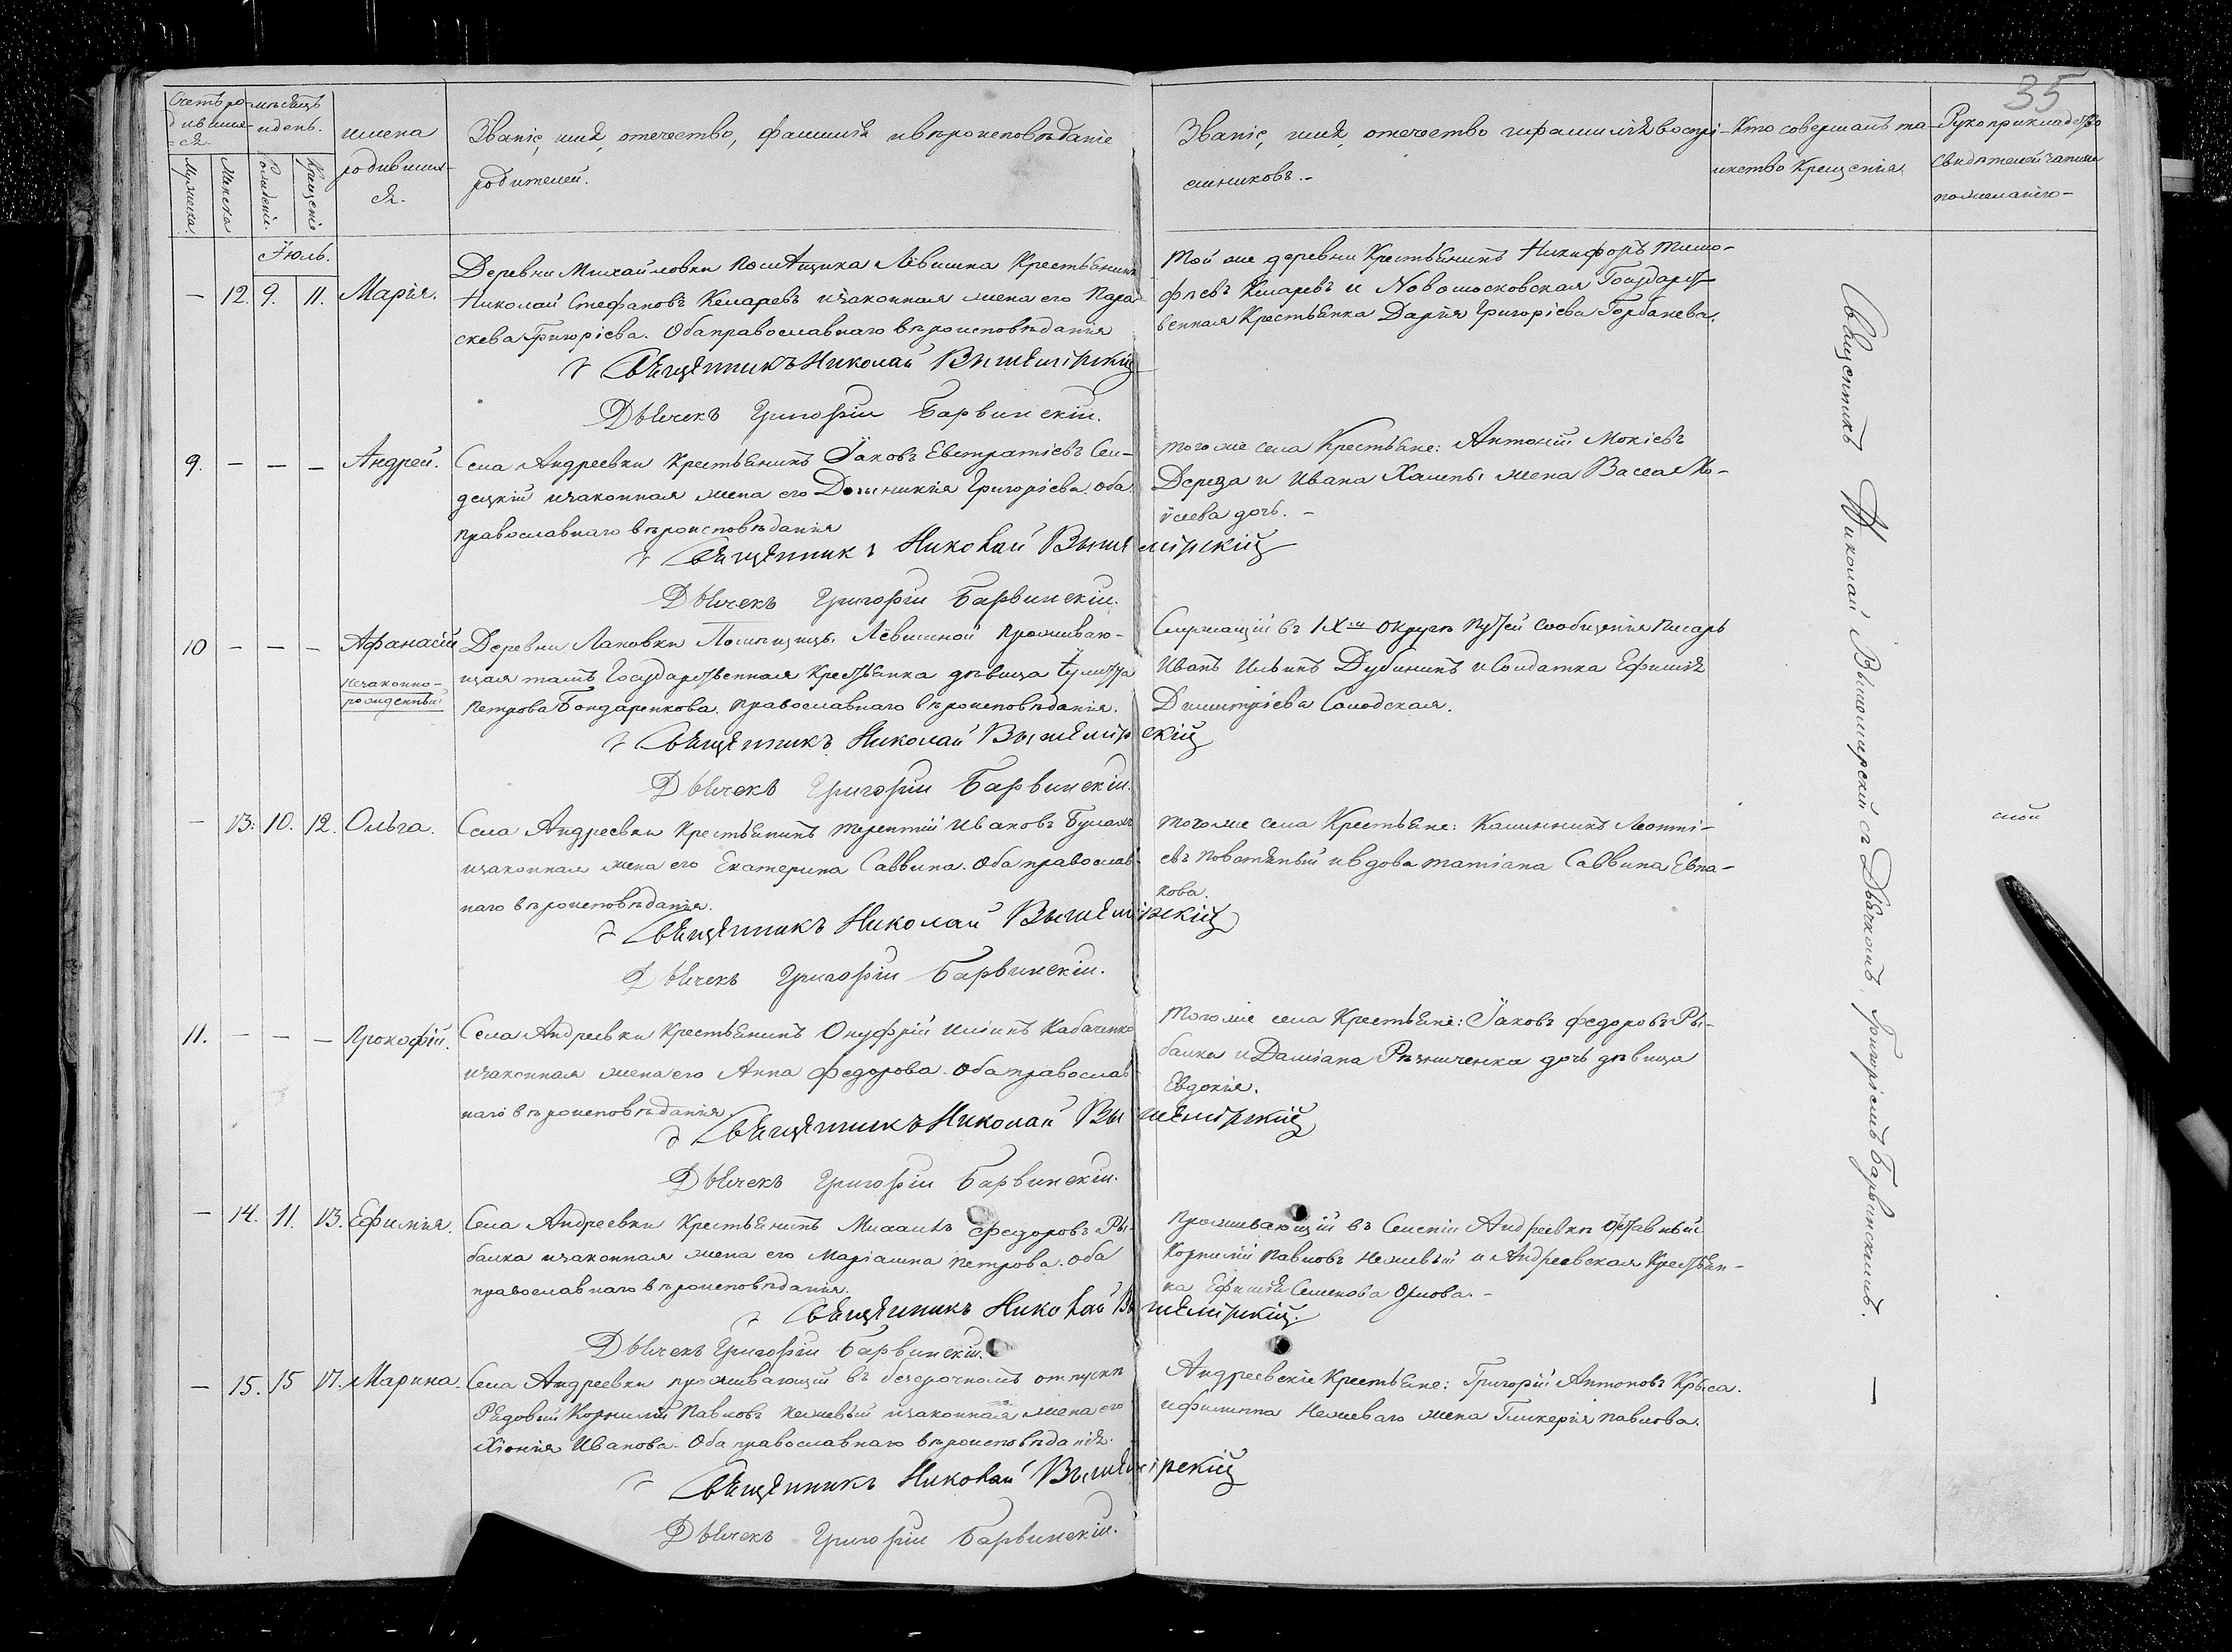 35
Счетъ ро-
дивших-
ся.
мѣсяцъ
и день.
имена
родивших-
ся.
Званіе, имя, отечество, фамилія и вѣроисповѣданіе
родителей.
Званіе, имя, отечество и фамилія воспрі-
емниковъ.-
Кто совершалъ та-
инство Крещенія.
Рукоприкладство
свидѣтелей записи
по желанію-
Мужеска.
Женска
Рожденіе.
Крещеніе
Іюль.
— 12. 9. 11. Марія.
Деревни Михайловки помѣщика Лёвшина Крестьянинъ
Николай Стефановъ Келаревъ и законная жена его Пара-
скева Григоріева. Оба православнаго вѣроисповѣданія
Священникъ Николай Вышемірскій
Дьячекъ Григорій Барвинскій.
Той же деревни Крестьянинъ Никифоръ Тимо-
фѣевъ Келаревъ и Новомосковская Государст-
венная Крестьянка Дарія Григоріева Горбанева.
9. — — — Андрей.
Села Андреевки Крестьянинъ Іаковъ Евстратіевъ Сен-
децкій и законная жена его Домникія Григоріева. Оба
православнаго вѣроисповѣданія
Священникъ Николай Вышемірскій
Дьячекъ Григорій Барвинскій.
Того же села Крестьяне: Антоній Мокіевъ
Дереза и Ивана Халепы жена Васса Мо-
ѵсеева дочь. -
10 — — — Афанасій
незаконно-
рожденный
Деревни Лановки Помѣщицы Лёвшиной прожива-
ющая тамъ Государственная Крестьянка дѣвица
Петрова Бондаренкова. православнаго вѣроисповѣданія.
Священникъ Николай Вышемірскій
Дьячекъ Григорій Барвинскій.
Служащій въ IX-мъ Округѣ путей сообщенія писарь
Иванъ Ильинъ Дубининъ и Солдатка Ефимія
Димитріева Солодская.
— 13. 10. 12. Ольга.
Села Андреевки Крестьянинъ Терентій Ивановъ
и законная жена его Екатерина Саввина. Оба православ-
наго вѣроисповѣданія.
Священникъ Николай Вышемірскій
Дьячекъ Григорій Барвинскій.
Того же села Крестьяне: Каллиникъ Леонті-
евъ Повстяный и вдова Татіана Саввина Евпа-
кова.
11. — — — Прокофій.
Села Андреевки Крестьянинъ Онуфрій Иліинъ Кабаченко
и законная жена его Анна Федорова. Оба православ-
наго вѣроисповѣданія.
Священникъ Николай Вышемірскій
Дьячекъ Григорій Барвинскій.
Того же села Крестьяне: Іаковъ Федоровъ Ры-
балка и Даміана Рѣзниченка дочь дѣвица
Евдокія.
— 14. 11. 13. Ефимія.
Села Андреевки Крестьянинъ Михаилъ Федоровъ Ры-
балка и законная жена его Маріамна Петрова. Оба
православнаго вѣроисповѣданія.
Священникъ Николай Вышемірскій.
Дьячекъ Григорій Барвинскій.
Проживающій въ Селеніи Андреевкѣ Отставный
Корнилій Павловъ Нежевый и Андреевская Крестьян-
ка Ефимія Семенова Орлова. -
— 15. 15 17. Марина.
Села Андреевки проживающій въ безсрочномъ отпускѣ
Рядовый Корнилій Павловъ Нежевый и законная жена его
Хіонія Иванова. Оба православнаго вѣроисповѣданія.
Священникъ Николай Вышемірскій
Дьячекъ Григорій Барвинскій.
Андреевскіе Крестьяне: Григорій Антоновъ Крыса.
и Филиппа Нежеваго жена Гликерія Павлова.
Священникъ Николай Вышемирскій съ Дьячкомъ Григоріемъ Барвинскимъ. —